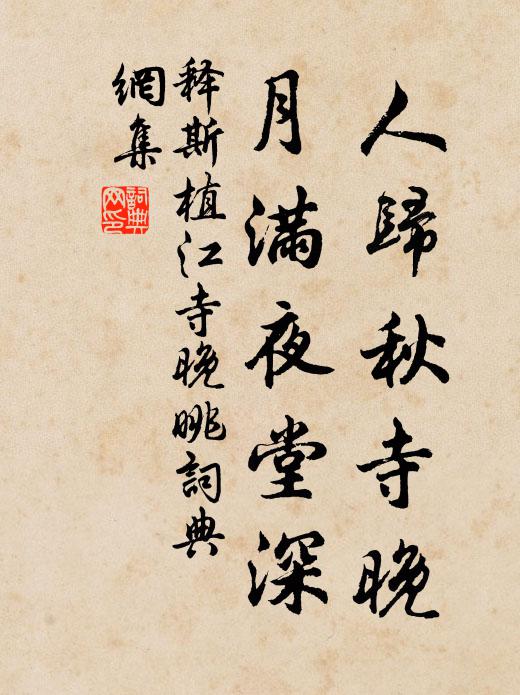 人歸秋寺晚
月滿夜堂深
释斯植江寺晚眺詞典
網集
詞典
网印